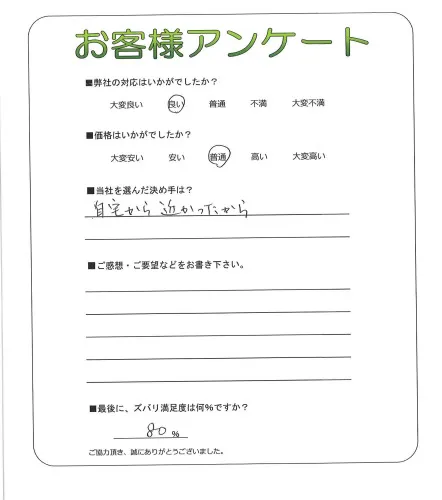 お客様アンケート
■弊社の対応はいかがでしたか?
大変良い 良い 普通 不満 大変不満
■価格はいかがでしたか?
大変安い 安い 普通 高い 大変高い
■当社を選んだ決め手は?
自宅から近かったから
■ご感想・ご要望などをお書き下さい。
■最後に、ズバリ満足度は何%ですか?
80 %
ご協力頂き、誠にありがとうございました。